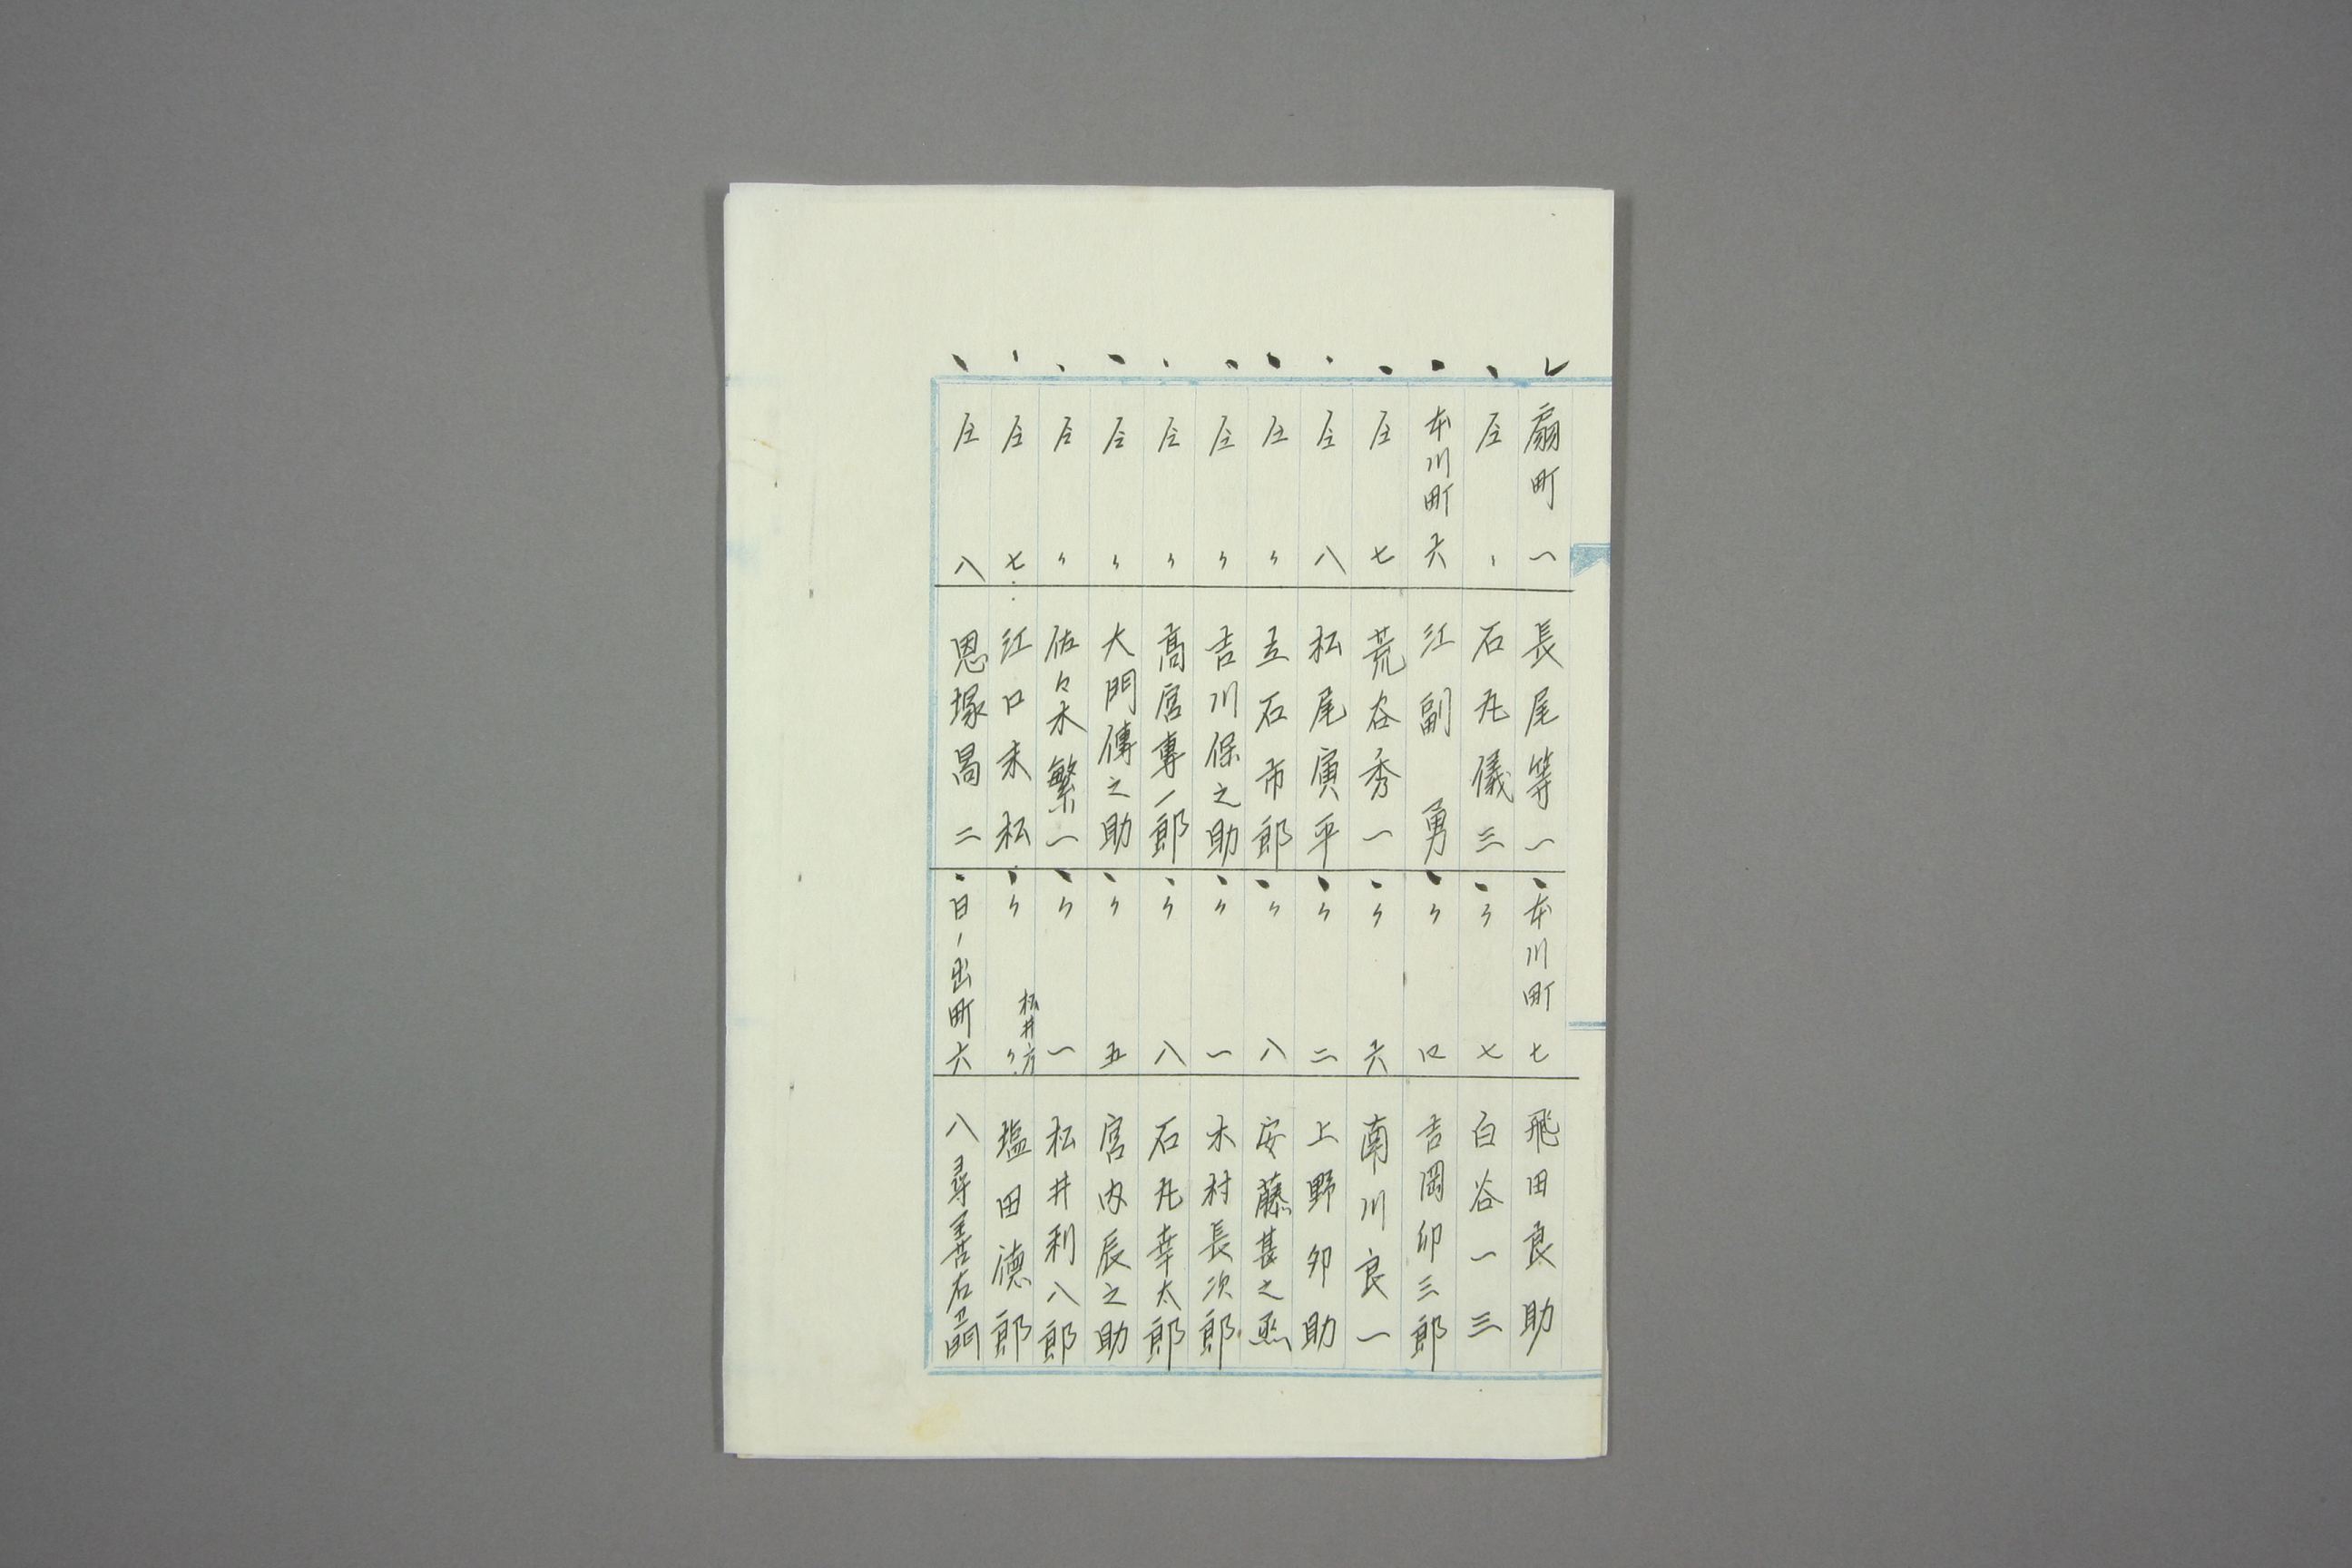 扇町 一 長尾等一
仝 〃 石丸儀三
本川町 六 江副勇
仝 七 荒谷秀一
仝 八 松尾寅平
仝 〃 立石市郎
仝 〃 吉川保之助
仝 〃 高宮専一郎
仝 〃 大門傳之助
仝 〃 佐々木繁一
仝 七 江口末松
仝 八 恩塚昌二
本川町 七 飛田良助
〃 七 白谷一三
〃 口 吉岡卯三郎
〃 六 南川良一
〃 二 上野卯助
〃 八 安藤甚之
〃 一 木村長次郎
〃 八 石丸幸太郎
〃 五 宮内辰之助
〃 一 松井利八郎
〃 〃 松井方 塩田德郎
日ノ出町 六 八尋善右衛門